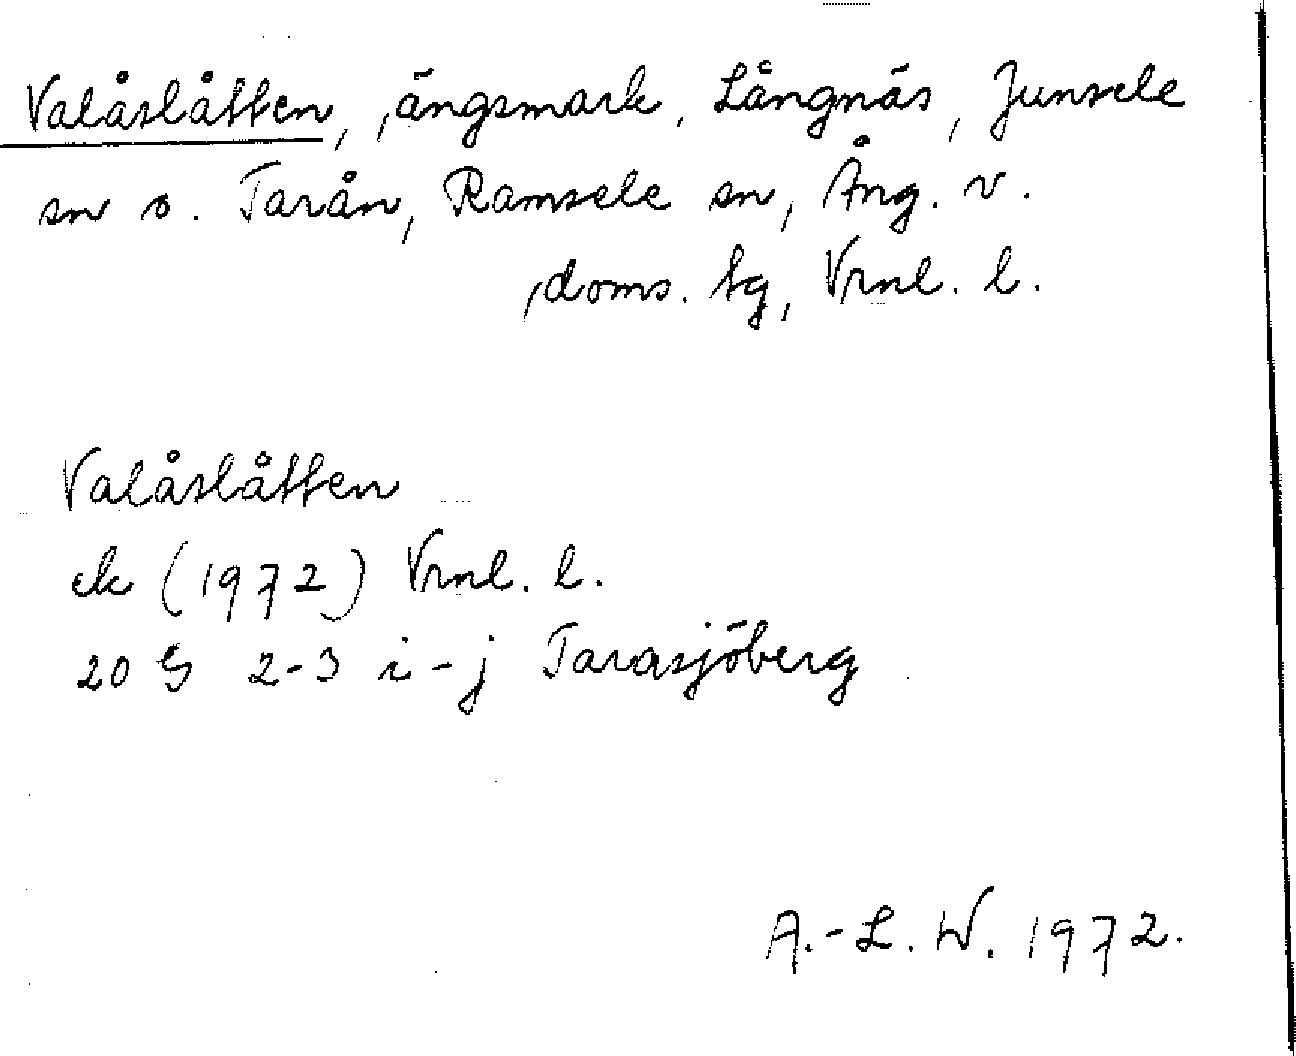 Valåslåtten, ängsmark, Långnäs, Junsele
sn o. Tarån, Ramsele sn, Ång. v.
doms. tg, Vrnl. l.
Valåslåtten
ek (1972) Vrnl. l.
20 G 2-3 i-j Tarasjöberg
A.-L. W. 1972.